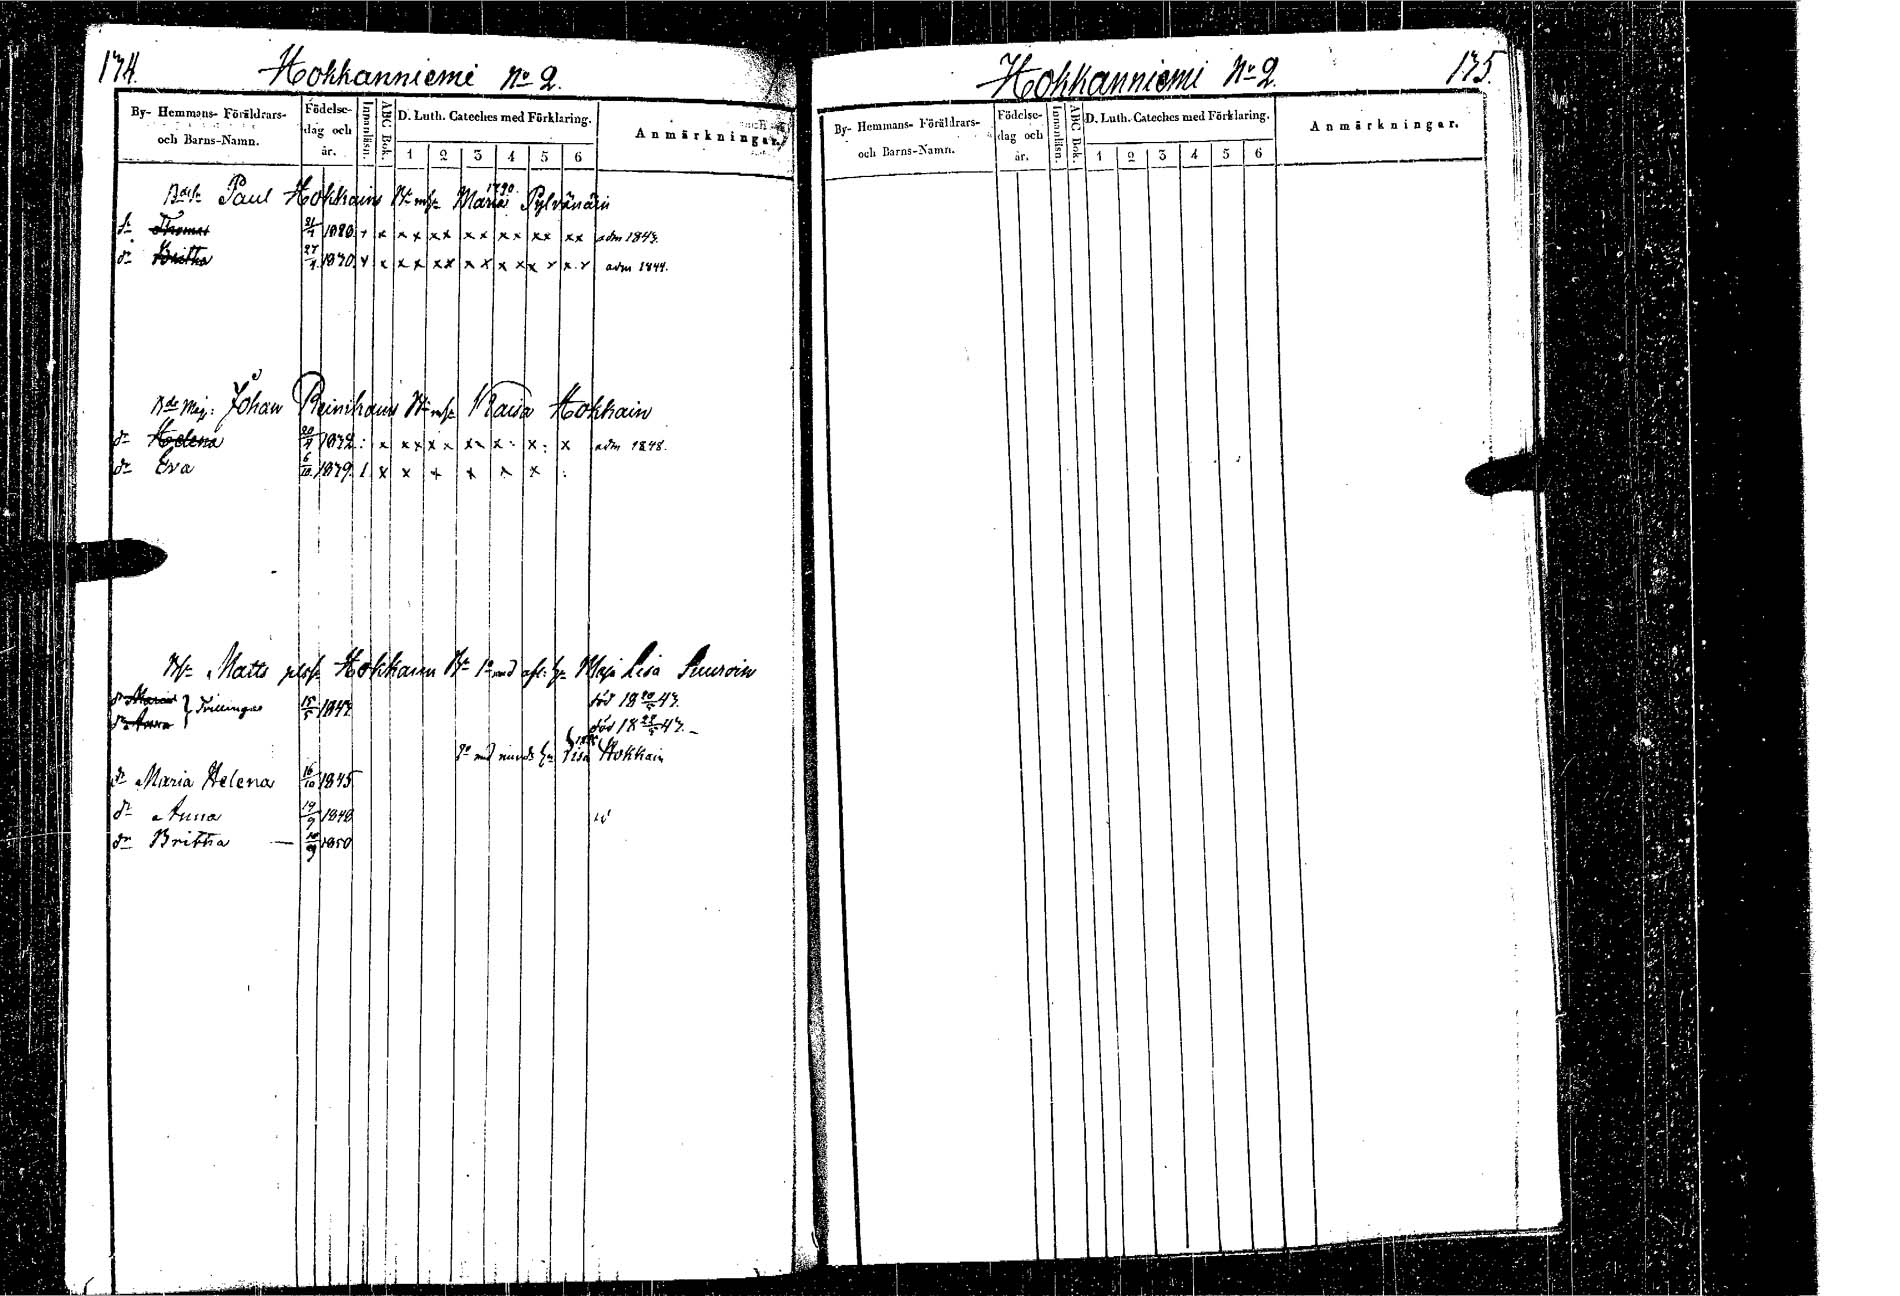 174.
Hokkanniemi No 2.
By- Hemmans- Föräldrars-
och Barns-Namn.
Födelse-
dag och
år.
Innanläsn.
ABC Bok.
D. Luth. Cateches med Förklaring.
1 2 3 4 5 6
Anmärkningar.
1790
Paul Hokkain Maria Pylvänäin
Sn Thomas 1820 x x x x x x x x x x x x x adm 1843.
dr Britha 27 1830 x x x x x x x x x x x x adm 1844.
Johan Reinikain Kaisa Hokkain
dr Helena 20 1832 x x x x x x x x x adm 1848.
dr Eva 6/10 1839 x x x x x x
Matts Hokkain Maja Lisa Suuroin
dr Maria
Tvillingar 15/5 1843 död 18 20/5 43.
dr Anna död 18 22/5 43.
Lisa Hokkain
dr Maria Helena 16/10 1845
dr Anna 19/9 1848
dr Britha 10/9 1850
Hokkanniemi No 2.
175.
By- Hemmans- Föräldrars-
och Barns-Namn.
Födelse-
dag och
år.
Innanläsn.
ABC Bok.
D. Luth. Cateches med Förklaring.
1 2 3 4 5 6
Anmärkningar.